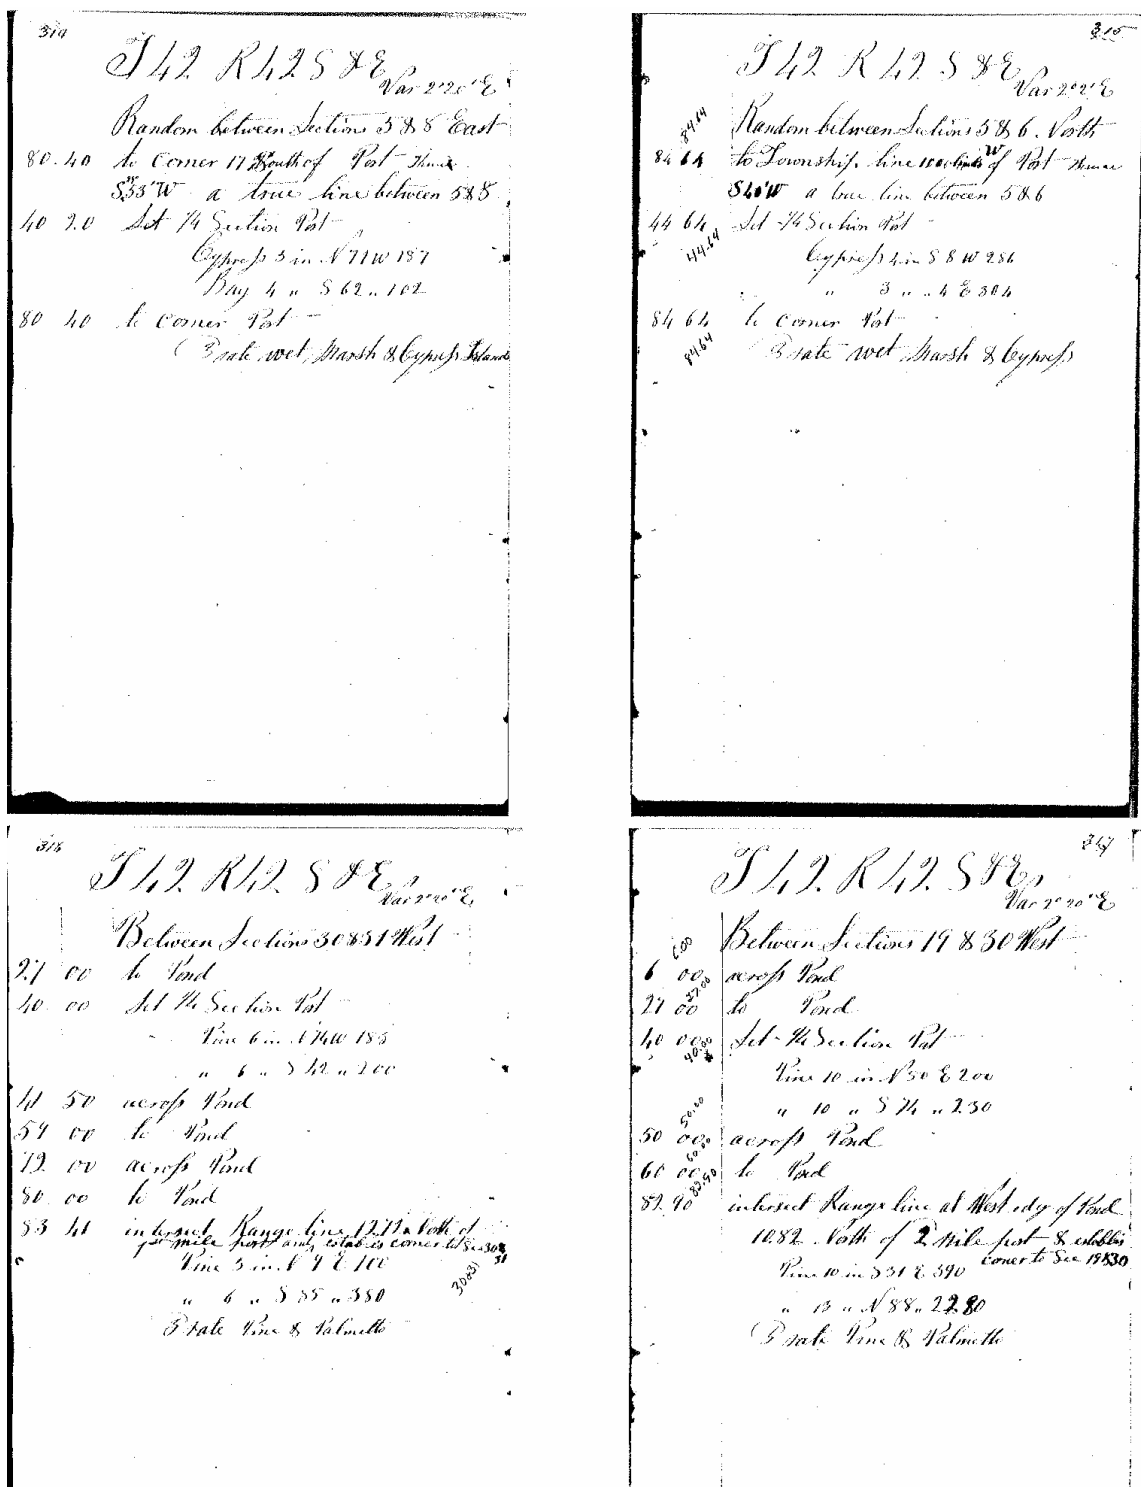 314
T 42 R 42 S & E
Var 2° 20' E
Random between Sections 5 & 8 East
80.40 to Corner 17 South of Post Thence
S 53' W a true line between 5 & 8
40 20 Set 1/4 Section Post
Cypress 3 in N 71 W 187
Bay 4 " S 62 " 102
80 40 to Corner Post
3 rate wet Marsh & Cypress Islands
315
T 42 R 42 S & E
Var 2° 2' E
Random between Sections 5 & 6 North
84.64
84 64 to Township line W of Post Thence
a true line between 5 & 6
44 64 Set 1/4 Section Post
44.64
Cypress 4 in S 8 W 286
" 3 " " 4 E 304
84 64 to Corner Post
84.64
3 rate wet Marsh & Cypress
316
T 42 R 42 S & E
Var 2° 20' E
Between Sections 30 & 31 West
27 00 to Pond
40 00 Set 1/4 Section Post
Pine 6 in N 74 W 185
" 6 " S 42 " 200
41 50 across Pond
57 00 to Pond
72 00 across Pond
80 00 to Pond
83 41 intersect Range line 12.72 North of
1st mile post and establis corner to Sec 30 & 31
Pine 3 in N 9 E 100
30 & 31
" 6 " S 35 " 380
3 rate Pine & Palmetto
317
T 42 R 42 S & E
Var 2° 20' E
Between Sections 19 & 30 West
6.00
6 00 across Pond
27.00
27 00 to Pond
40 00 Set 1/4 Section Post
40.00
Pine 10 in N 50 E 200
" 10 " S 74 " 230
50.00
50 00 across Pond
60 00 to Pond
82.90
82.90 intersect Range line at West edg of Pond
10.82 North of 2 mile post & establis
corner to Sec 19 & 30
Pine 10 in S 31 E 390
" 13 " N 88 "
3 rate Pine & Palmetto